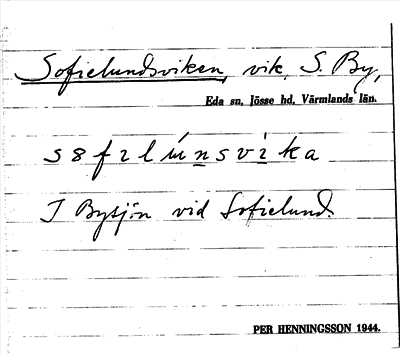 Sofielundsviken, vik, S. By,
Eda sn, Jösse hd, Värmlands län.
s 8 f ı l ú n s v ì k a
I Bysjön vid Sofielund.
PER HENNINGSSON 1944.